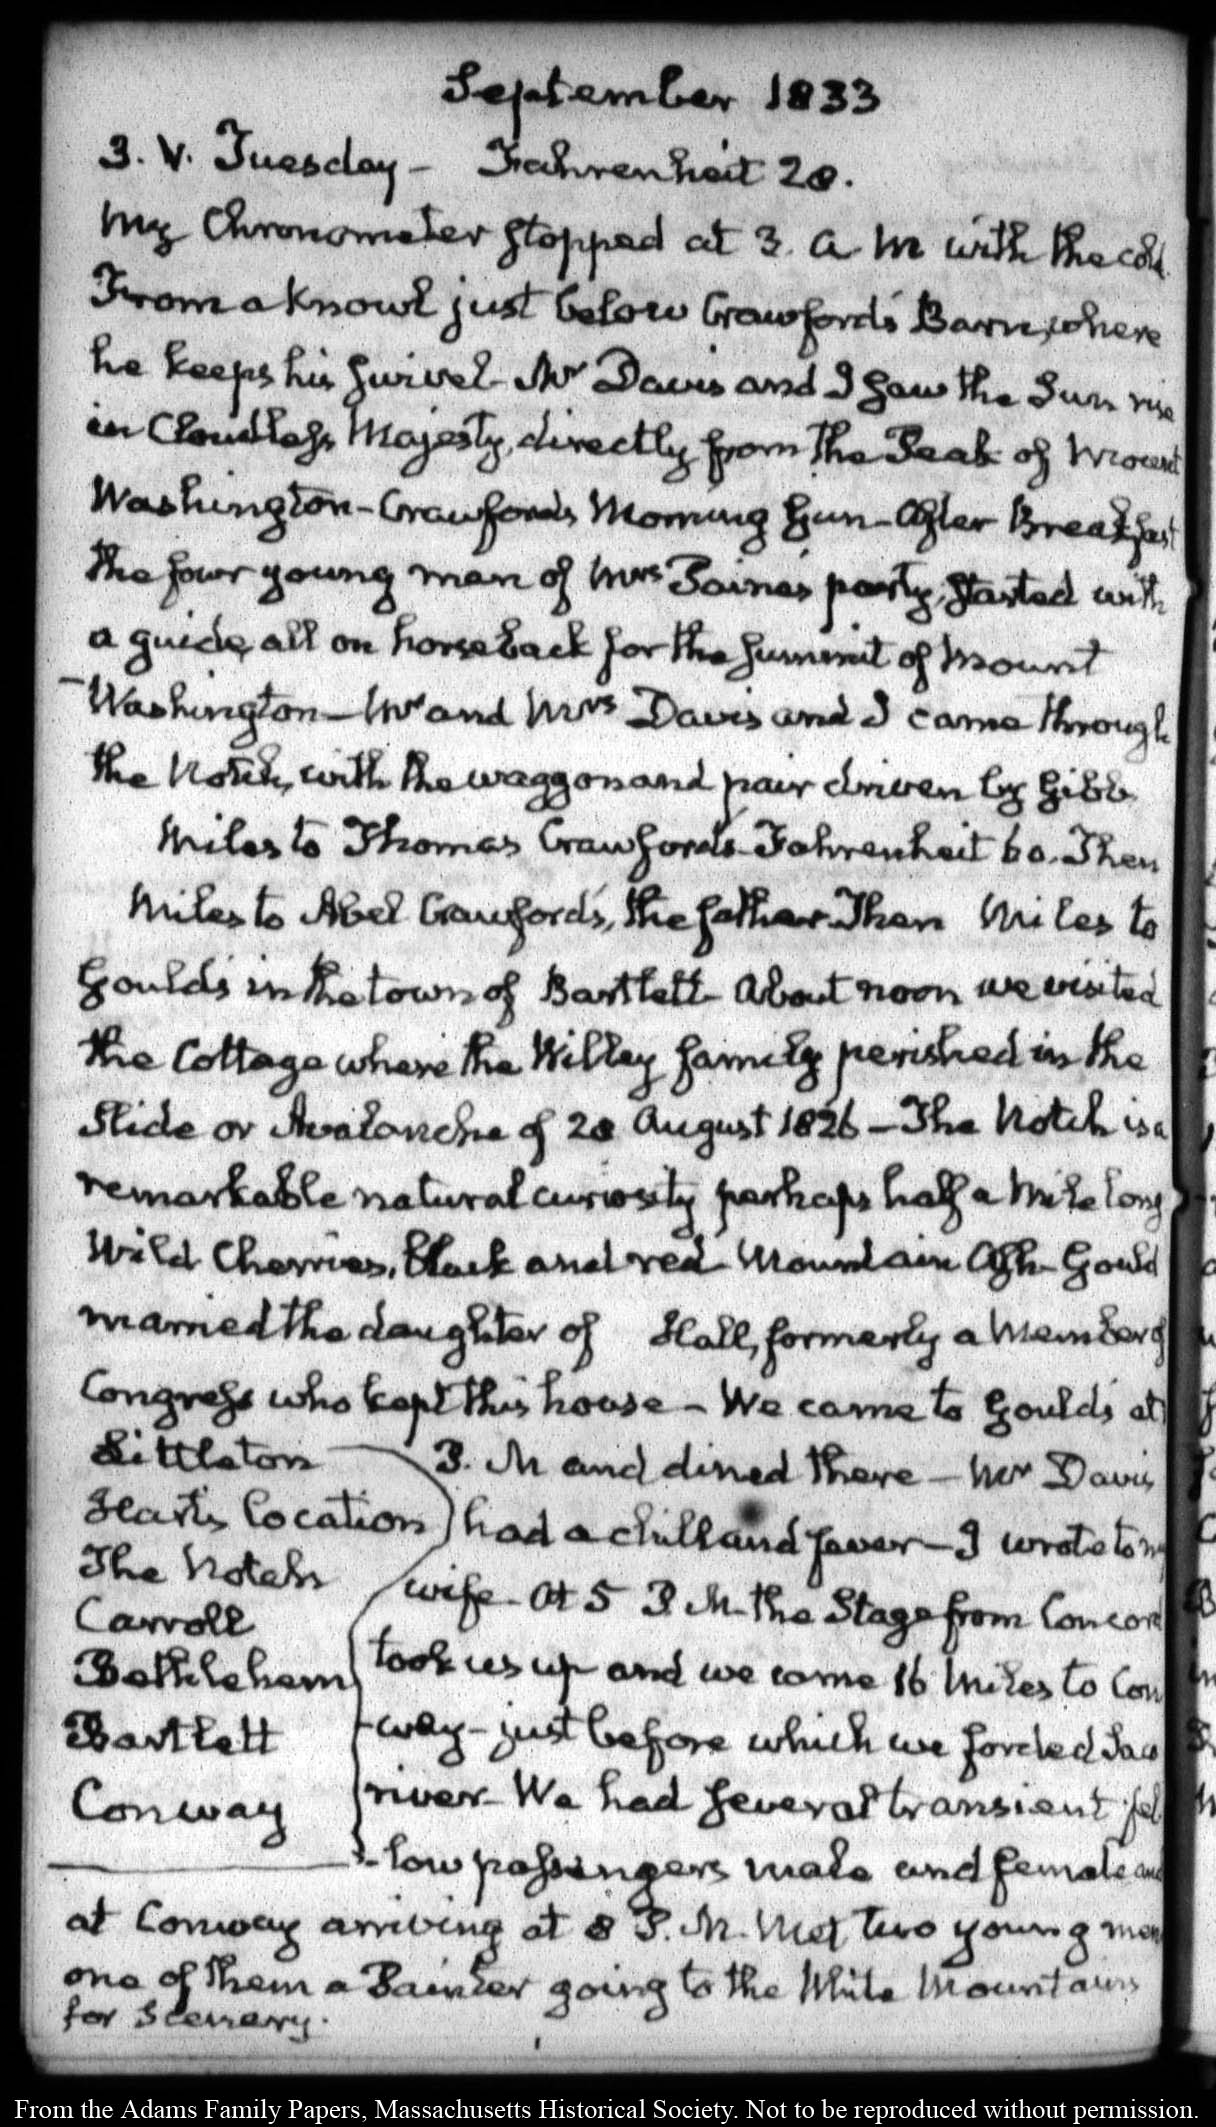 September 1833
3. V. Tuesday – Fahrenheit 28.
My Chronometer stopped at 3. A M with the cold.
From a knowl just below Crawford's Barn, where
he keeps his swivel – Mr Davis and I saw the Sun rise
in Cloudless Majesty, directly from the Peak of Mount
Washington – Crawfords Morning Gun – After Breakfast
the four young men of Mrs Paine's party, started with
a guide, all on horseback for the summit of Mount
Washington – Mr and Mrs Davis and I came through
the Notch, with the waggon and pair driven by Gibb
Miles to Thomas Crawford's – Fahrenheit 60. Then
Miles to Abel Crawford's, the father. Then Miles to
Gould's in the town of Bartlett – About noon we visited
the Cottage where the Willey family perished in the
Slide or Avalanche of 28 August 1826 – The Notch is a
remarkable natural curiosity perhaps half a Mile long
Wild Cherries, black and red – Mountain Ash – Gould
married the daughter of Hall, formerly a Member of
Congress who kept this house – We came to Gould's at
Littleton
Hart's location
The Notch
Carroll
Bethlehem
Bartlett
Conway
P. M and dined there – Mr Davis
had a chill and fever – I wrote to my
wife – At 5 P. M – the Stage from Concord
took us up and we came 16 Miles to Con
-way – just before which we forded Saco
river – We had several transient fel
-low passengers male and female and
at Conway arriving at 8 P. M. Met two young men
one of them a Painter going to the White Mountains
for Scenery.
From the Adams Family Papers, Massachusetts Historical Society. Not to be reproduced without permission.